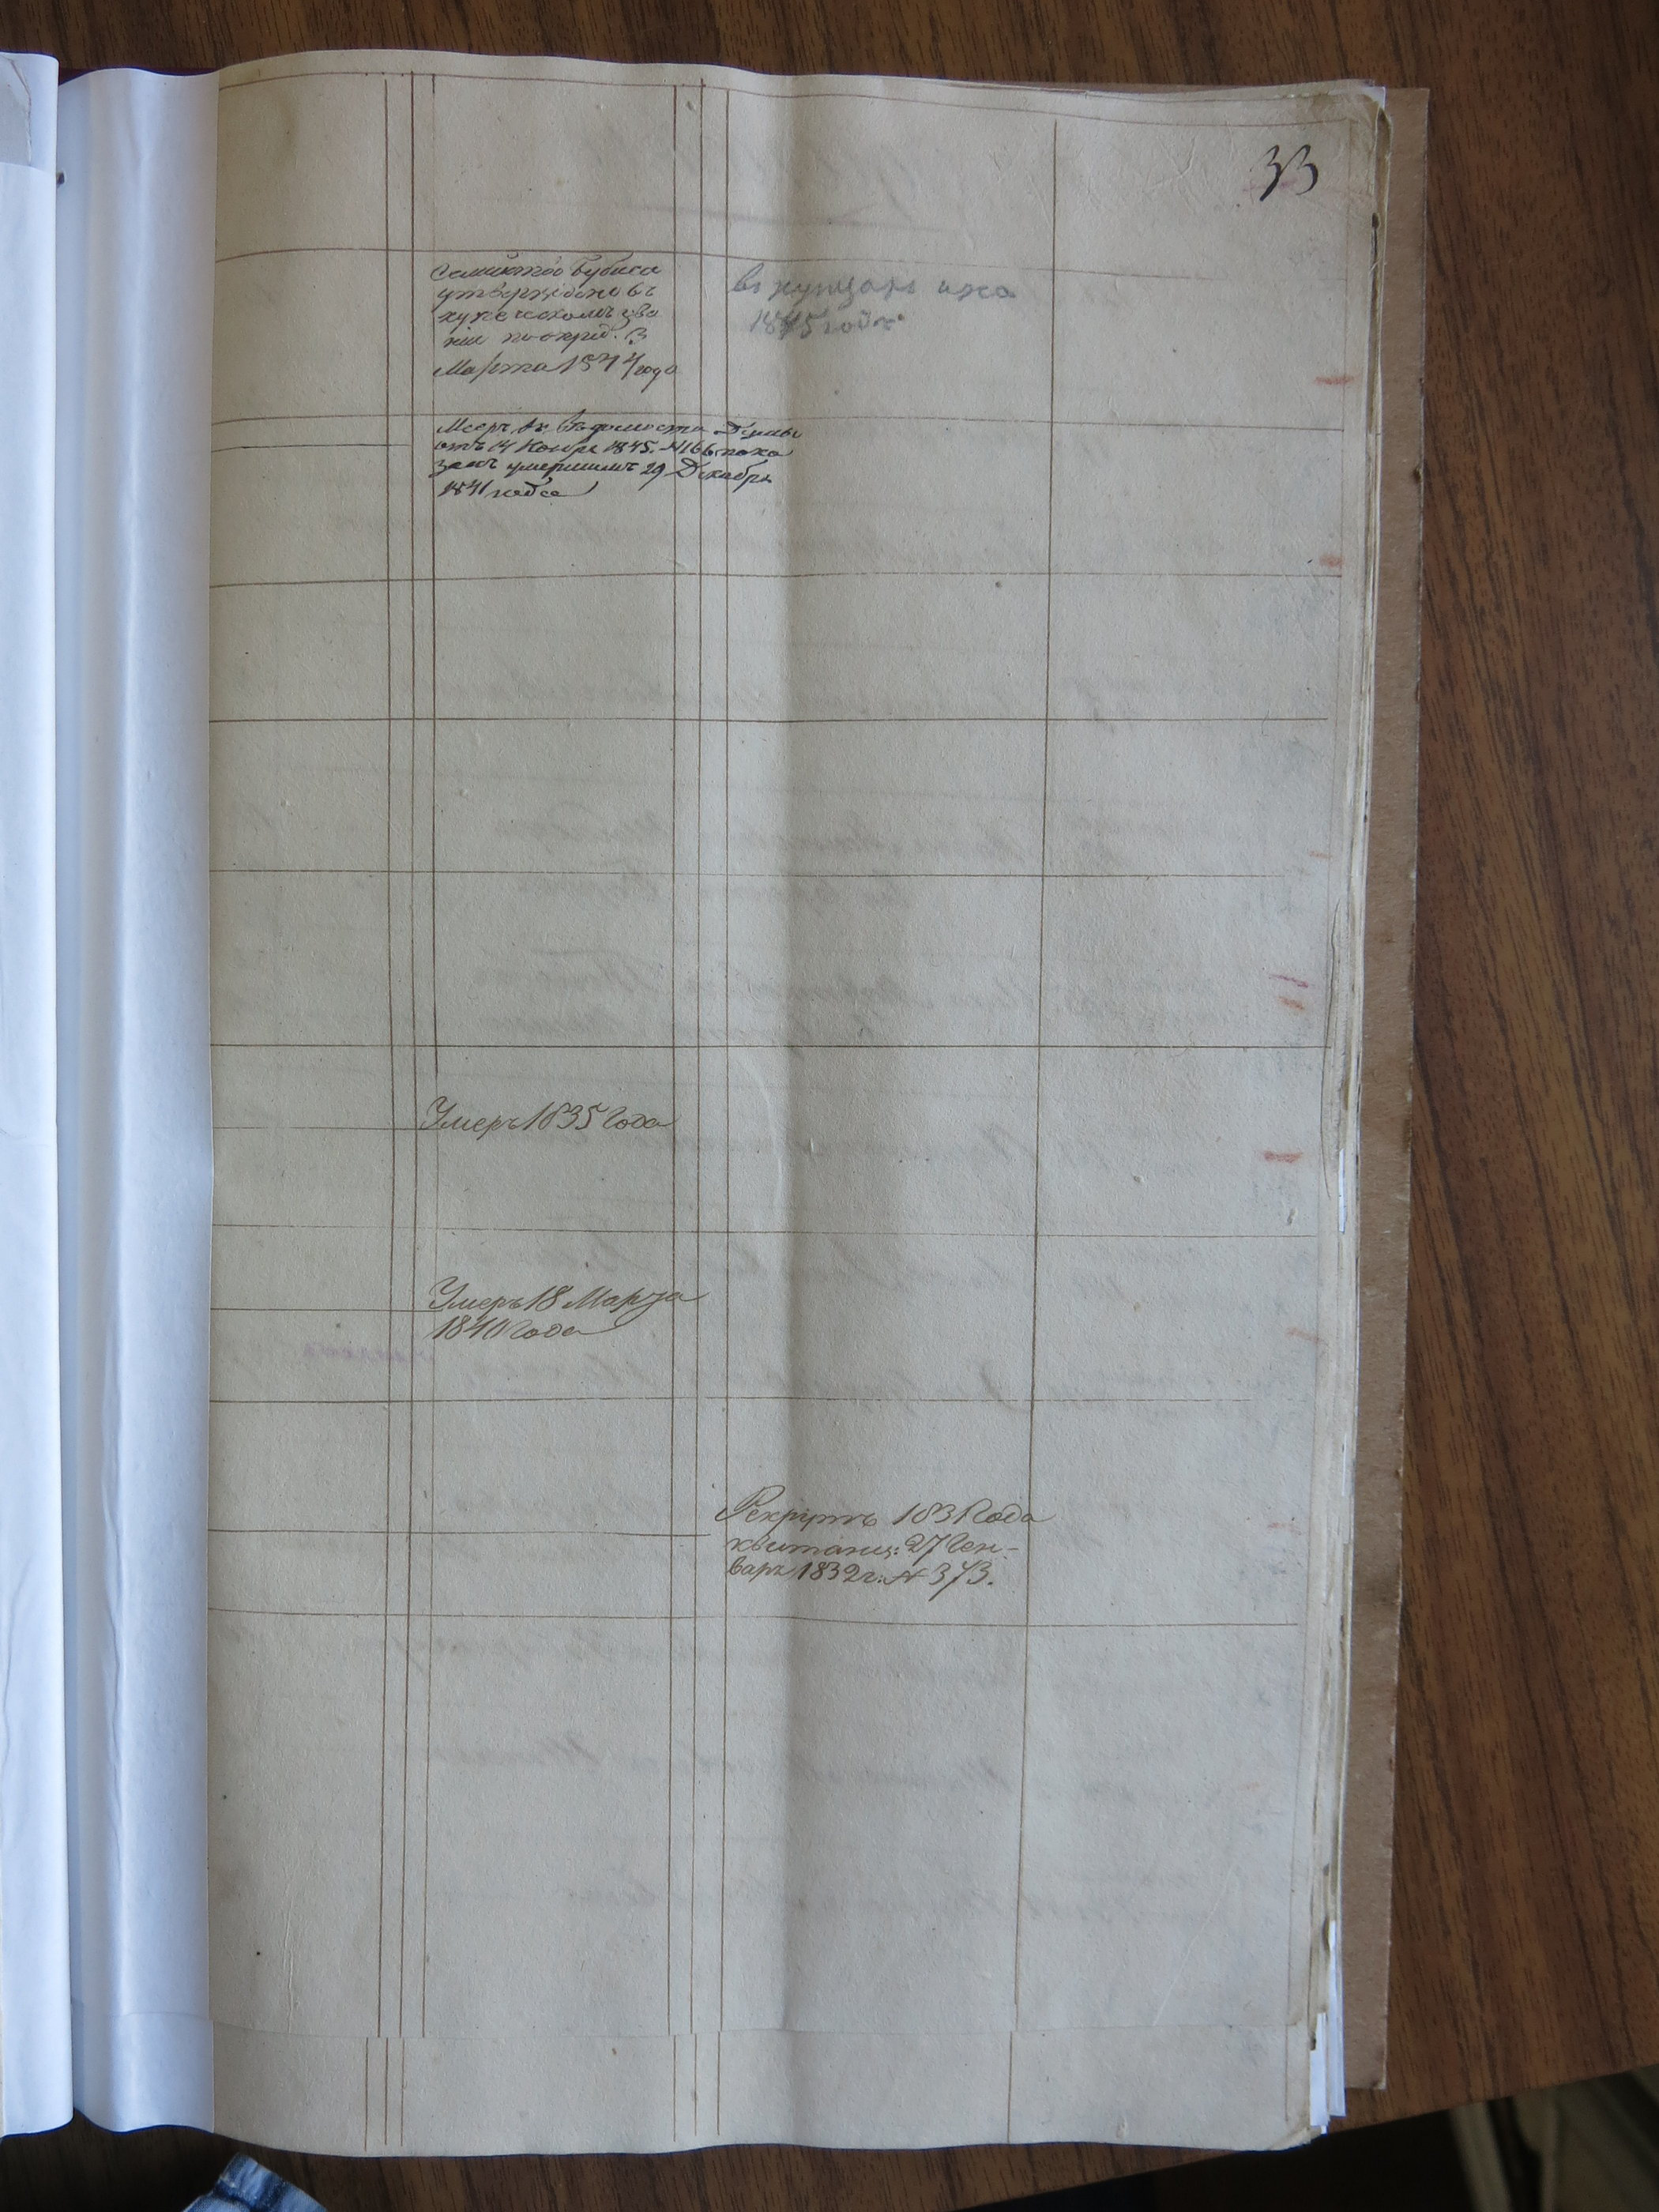 33
Семейство Бубиса
утверждено въ
купеческомъ зва
ніи по опред. 3
Марта 1844 года
въ купцахъ
1845 года
Мееръ по Ведомости Думы
отъ 14 Ноября 1845. №166 пока
занъ умершимъ 29 Декабря
1841 года
Умеръ 1835 года
Умеръ 18 Марта
1840 года
Рекрутъ 1831 года
квитанц: 27 Ген-
варя 1832 г: № 373.